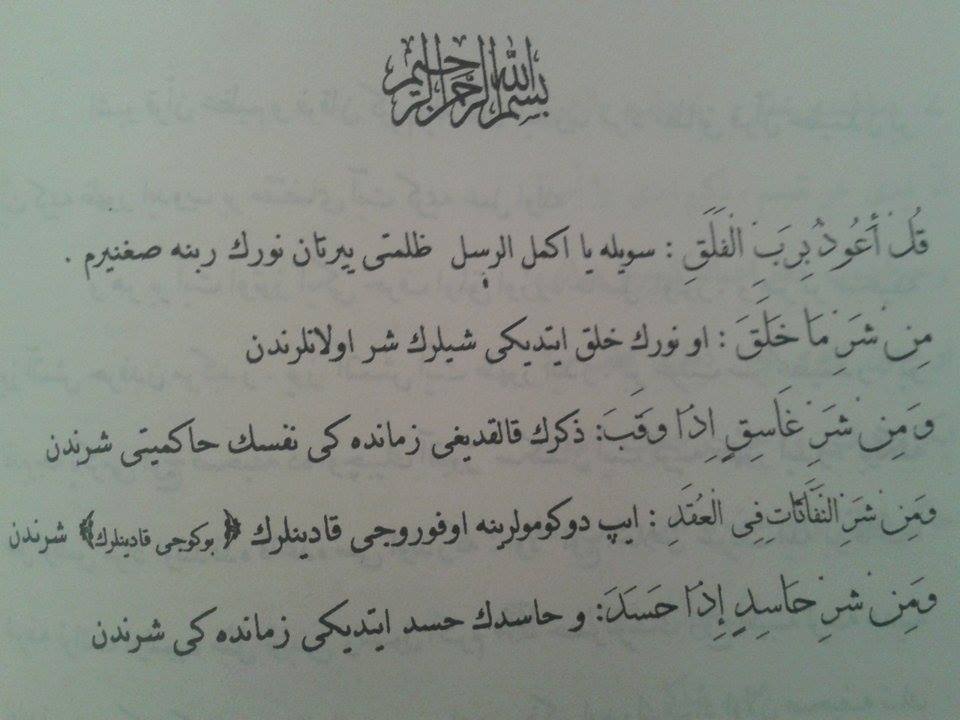 بسم الله الرحمن الرحيم
قُلْ أَعُوذُ بِرَبِّ الْفَلَقِ : سويله يا اكمل الرسل ظلمتى ييرتان نورك ربنه صغنيرم .
مِنْ شَرِّ مَا خَلَقَ : او نورك خلق ايتديكى شيلرك شر اولانلرندن
وَمِنْ شَرِّ غَاسِقٍ إِذَا وَقَبَ: ذكرك قالقديغى زمانده كى نفسك حاكميتى شرندن
وَمِنْ شَرِّ النَّفَّاثَاتِ فِى الْعُقَدِ : ايپ دوكوملرينه اوفوروجى قادينلرك ﴿ بوكوجى قادينلرك﴾ شرندن
وَمِنْ شَرِّ حَاسِدٍ إِذَا حَسَدَ: و حاسدك حسد ايتديكى زمانده كى شرندن